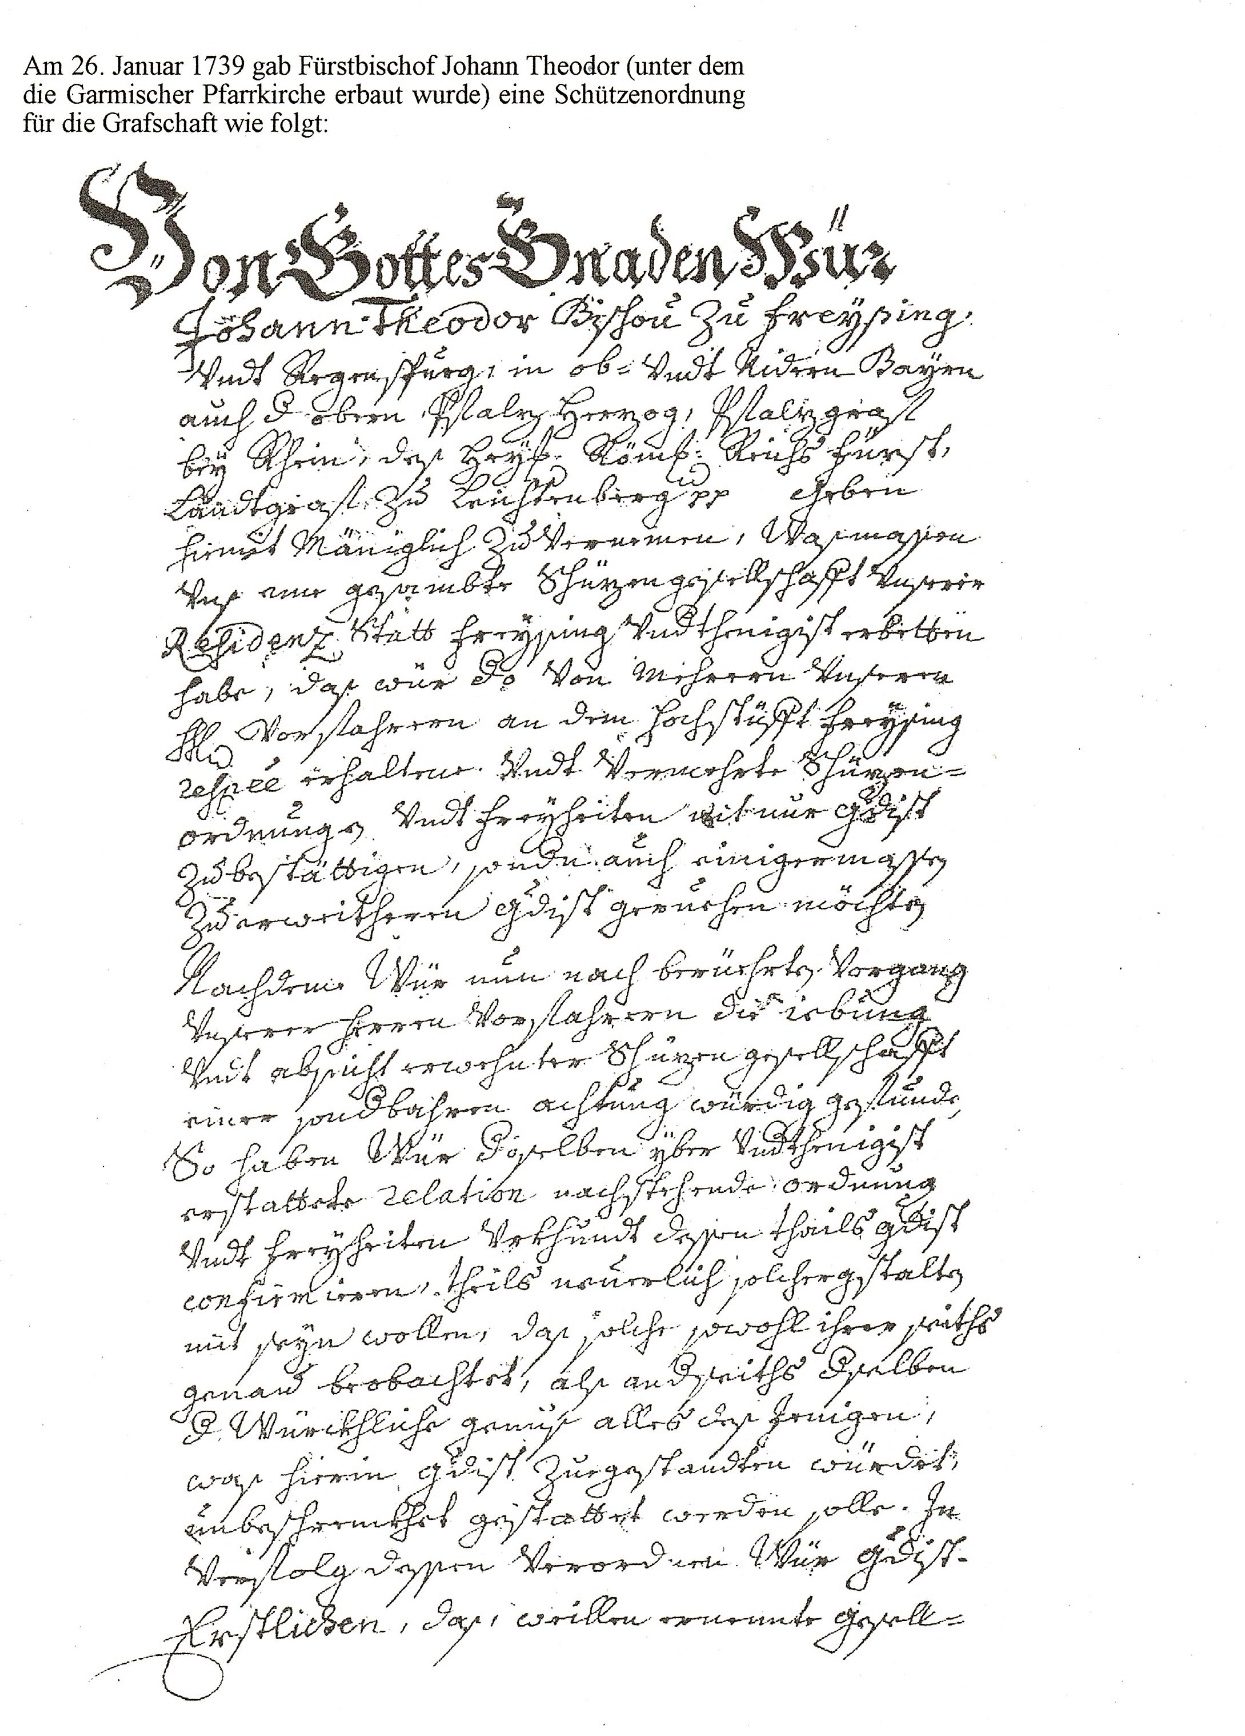 Am 26. Januar 1739 gab Fürstbischof Johann Theodor (unter dem
die Garmischer Pfarrkirche erbaut wurde) eine Schützenordnung
für die Grafschaft wie folgt:
Von Gottes Gnaden Wür
Johann Theodor Bischou Zu Freysing,
Vndt Regenspurg, in ob- Vndt Nidern Bayrn
auch d obern Pfalz Herzog, Pfalzgraf
bey Rhein, deß Heyl. Röms: Reichs Fürst,
Landtgraf Zu Leichtenberg pp Geben
hiemit Mäniglich Zu Vernemen, Wasmassen
Vnß eine gesambte Schüzengesellschafft Vnserer
Residenz Statt Freysing Vndthenigist erbetten
habe, daß wür die Von Mehrern Vnseren
Vorfahrern an dem Hochstüfft Freysing
erhaltene Vndt Vermehrte Schüzen-
ordnung Vndt Freyheiten nit nur gdist
Zubestättigen, sondn auch einigermassen
Zu erweitheren gdist geruehen möchten
Nachdeme Wür nun nach berüehrten Vorgang
Vnserer Herren Vorfahrern die iebung
Vndt absicht erwehnter Schüzen gesellschafft
einer sondbahren achtung würdig gefunden,
So haben Wür dieselben yber Vndthenigist
erstattete relation nachstehende ordnung
Vndt Freyheiten Vrkhundt dessen theils gdist
confirmieren, theils neuerlich solchergstalten
mit seyn wollen, daß solche sowohl ihrer seiths
genau beobachtet, alß andseiths dselben
d Würckhliche genuß alles deß Jenigen,
waß hierin gdist Zuegestandten würdet,
unbeschrenkhet gestattet werden solle. In
Verfolg dessen Verordnen Wür gdist.
Erstlichen, daß, weillen ernennte gesell-